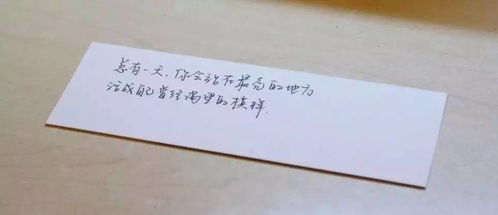 总有一天，你会站在最亮的地方
活成自己曾经渴望的模样．